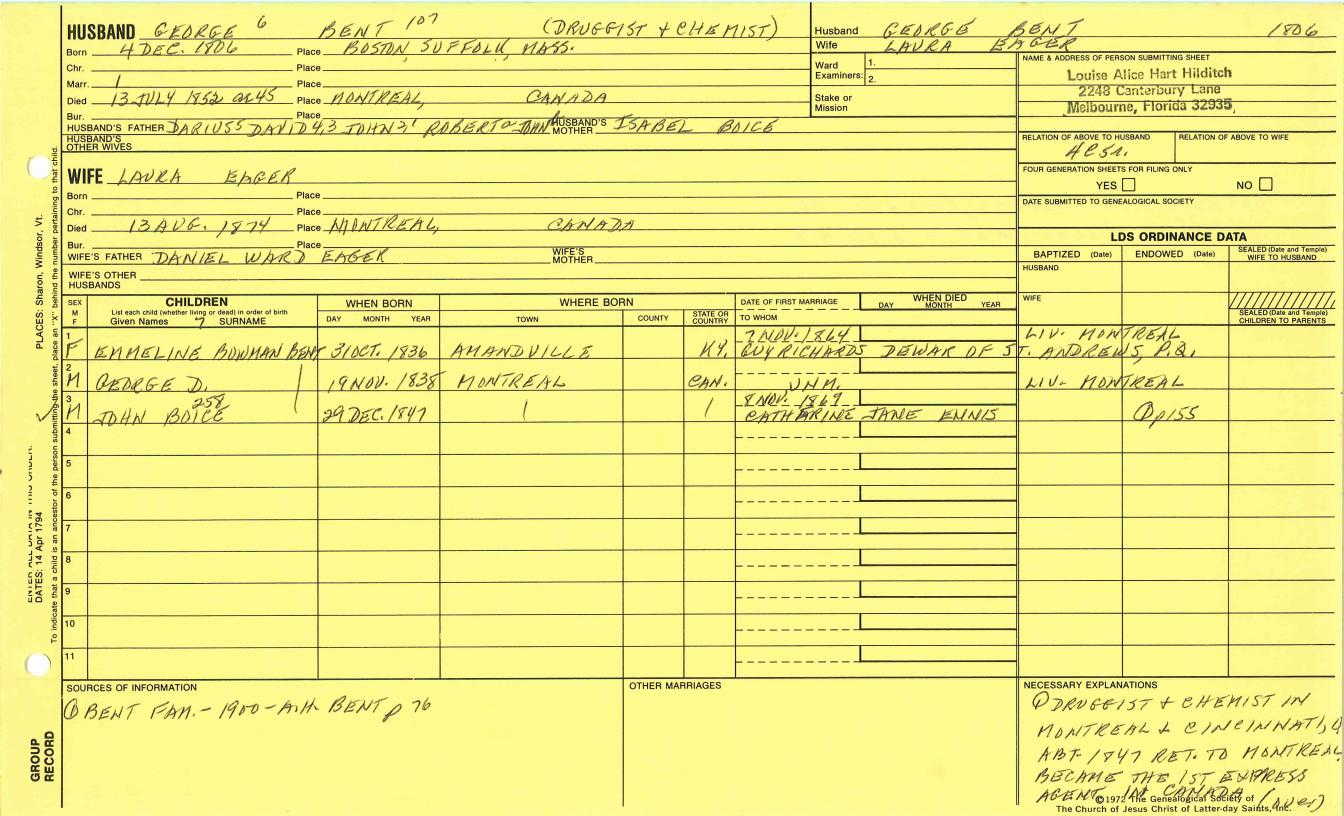 HUSBAND GEORGE 6 BENT 107 (DRUGGIST & CHEMIST)
Born 4 DEC. 1806 Place BOSTON, SUFFOLK, MASS.
Chr. Place
Marr. Place
Died 13 JULY 1852 ae 45 Place MONTREAL, CANADA
Bur. Place
HUSBAND'S FATHER DARIUS5 DAVID4,3 JOHN3, ROBERT2 JOHN1 HUSBAND'S MOTHER ISABEL BOICE
HUSBAND'S OTHER WIVES
WIFE LAURA EAGER
Born Place
Chr. Place
Died 13 AUG. 1874 Place MONTREAL, CANADA
Bur. Place
WIFE'S FATHER DANIEL WARD EAGER WIFE'S MOTHER
WIFE'S OTHER HUSBANDS
Husband GEORGE BENT 1806
Wife LAURA EAGER
Ward Examiners: 1.
2.
Stake or Mission
NAME & ADDRESS OF PERSON SUBMITTING SHEET
Louise Alice Hart Hilditch
2248 Canterbury Lane
Melbourne, Florida 32935
RELATION OF ABOVE TO HUSBAND RELATION OF ABOVE TO WIFE
FOUR GENERATION SHEETS FOR FILING ONLY
YES NO
DATE SUBMITTED TO GENEALOGICAL SOCIETY
LDS ORDINANCE DATA
BAPTIZED (Date) ENDOWED (Date) SEALED (Date and Temple) WIFE TO HUSBAND
HUSBAND
WIFE
SEALED (Date and Temple) CHILDREN TO PARENTS
SEX M F CHILDREN WHEN BORN WHERE BORN DATE OF FIRST MARRIAGE WHEN DIED
List each child (whether living or dead) in order of birth
Given Names 7 SURNAME DAY MONTH YEAR TOWN COUNTY STATE OR COUNTRY TO WHOM DAY MONTH YEAR
1 7 NOV. 1864 LIV- MONTREAL
F EMMELINE BOWMAN BENT 31 OCT. 1836 AMANDVILLE KY. GUY RICHARDS DEWAR OF ST. ANDREWS, P.Q.
2
M GEORGE D. 19 NOV. 1838 MONTREAL CAN. UNM. LIV- MONTREAL
3 258 8 NOV. 1869
M JOHN BOICE 29 DEC. 1847 CATHARINE JANE ENNIS ① p155
4
5
6
7
8
9
10
11
SOURCES OF INFORMATION
① BENT FAM. - 1900 - A.H. BENT p 76
OTHER MARRIAGES
NECESSARY EXPLANATIONS
① DRUGGIST & CHEMIST IN
MONTREAL & CINCINNATI, O
ABT- 1847 RET. TO MONTREAL
BECAME THE 1ST EXPRESS
AGENT IN CANADA (over)
©1972 The Genealogical Society of
The Church of Jesus Christ of Latter-day Saints, Inc.
ENTER ALL DATA IN THIS ORDER:
DATES: 14 Apr 1794
PLACES: Sharon, Windsor, Vt.
To indicate that a child is an ancestor of the person submitting the sheet, place an "X" behind the number pertaining to that child.
GROUP RECORD